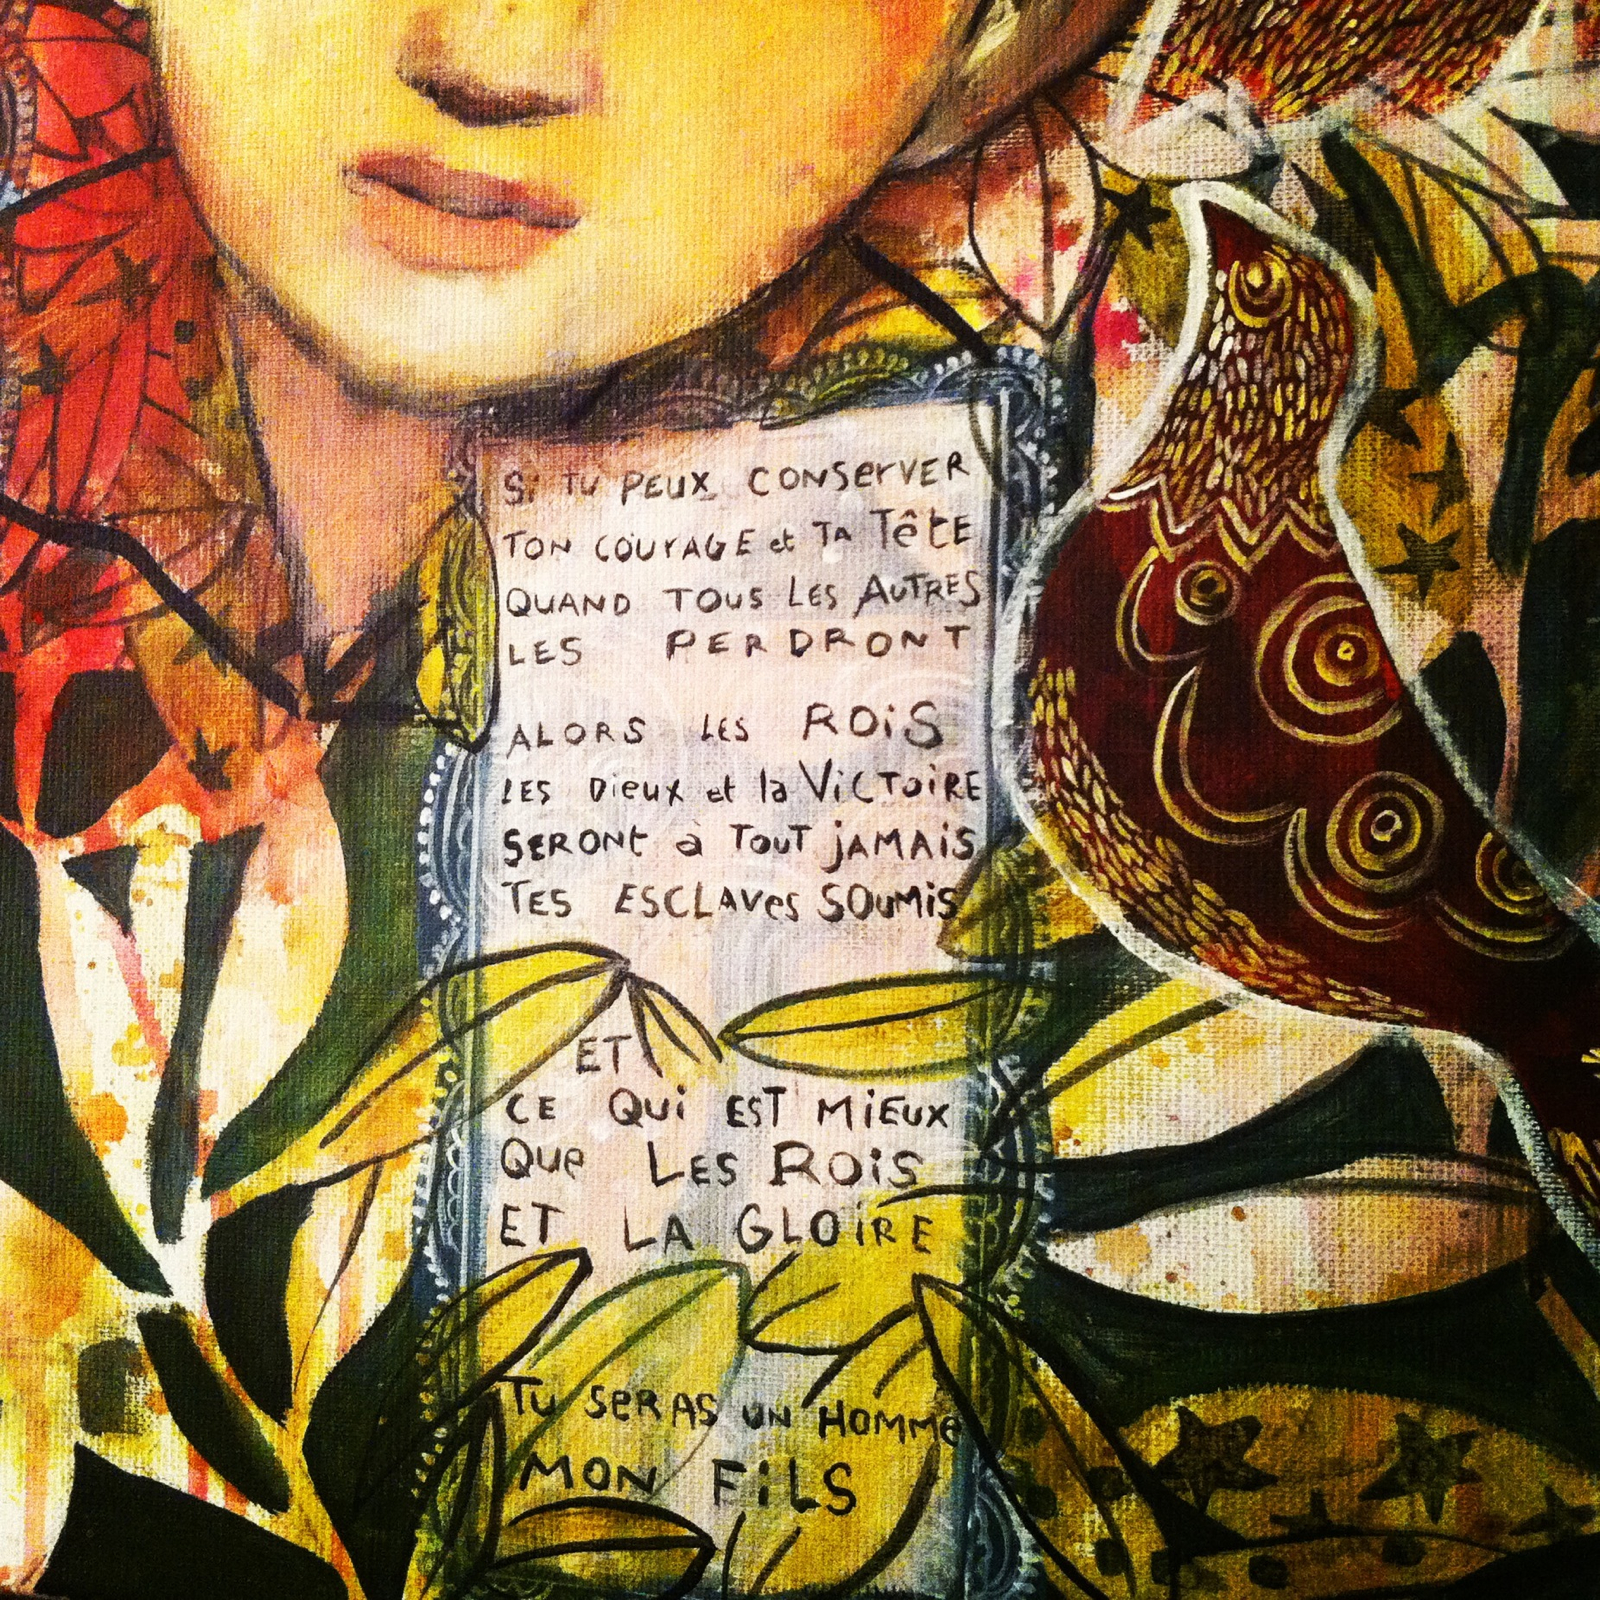 Si TU PEUX CONSERVER
TON COURAGE et TA TêtE
QUAND TOUS LES AUTRES
LES PERDRONT
ALORS LES ROiS
LES Dieux et la ViCToiRE
SERONt à TOUT jAMAiS
TES ESCLAVes SOUMiS
ET
CE QUi EST MiEUX
Que LES ROiS
ET LA GLOiRE
TU SERAS UN HOMMe
MON FiLS